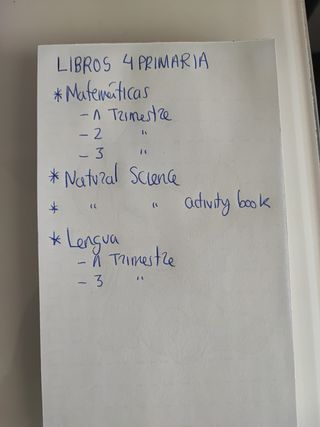 LIBROS 4 PRIMARIA
* Matemáticas
- 1 Trimestre
- 2 "
- 3 "
* Natural Science
* " " activity book
* Lengua
- 1 Trimestre
- 3 "